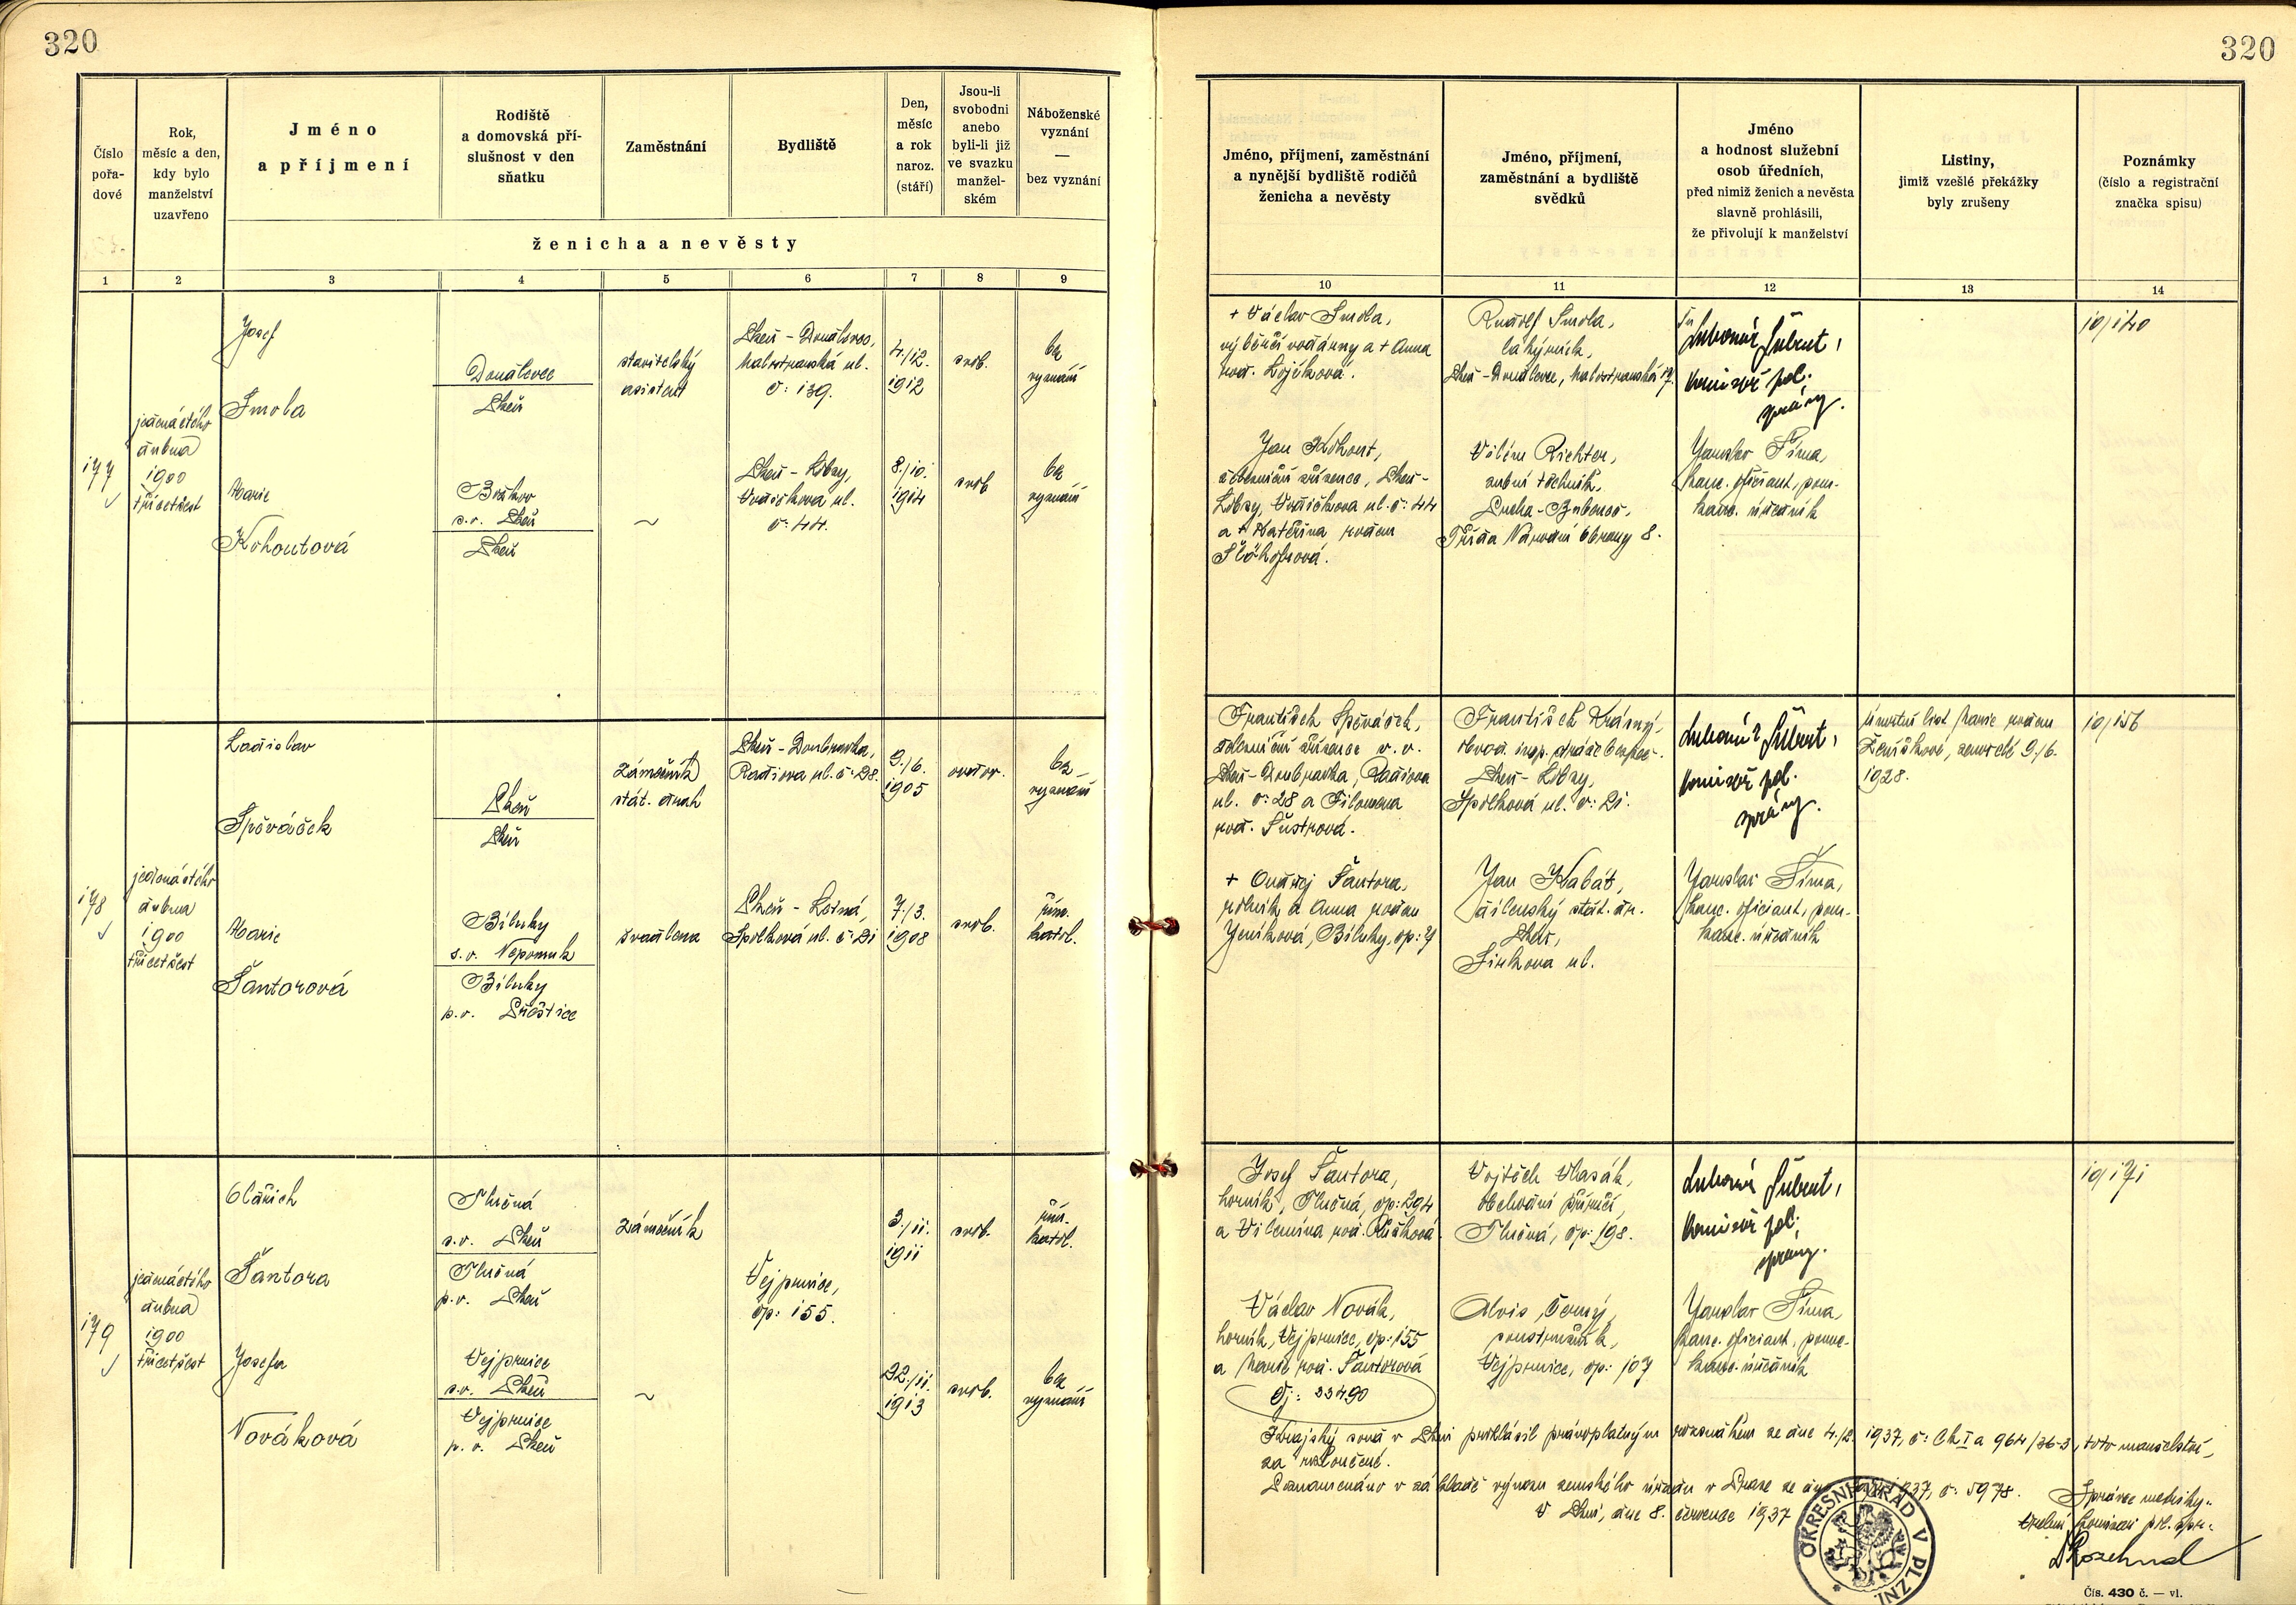 320
320
Číslo
pořa-
dové
Rok,
měsíc a den,
kdy bylo
manželství
uzavřeno
Jméno
a příjmení
Rodiště
a domovská pří-
slušnost v den
sňatku
Zaměstnání
Bydliště
Den,
měsíc
a rok
naroz.
(stáří)
Jsou-li
svobodni
anebo
byli-li již
ve svazku
manžel-
ském
Náboženské
vyznání
—
bez vyznání
ženicha a nevěsty
1 2 3 4 5 6 7 8 9
Jméno, příjmení, zaměstnání
a nynější bydliště rodičů
ženicha a nevěsty
Jméno, příjmení,
zaměstnání a bydliště
svědků
Jméno
a hodnost služební
osob úředních,
před nimiž ženich a nevěsta
slavně prohlásili,
že přivolují k manželství
Listiny,
jimiž vzešlé překážky
byly zrušeny
Poznámky
(číslo a registrační
značka spisu)
10 11 12 13 14
177
jedenáctého
dubna
1900
třicetšest
Josef
Smola
Doudlevce
Plzeň
stavitelský
asistent
Plzeň - Doudlevce,
Malostranská ul.
č: 139.
4./12.
1912
svob.
bez
vyznání
Marie
Kohoutová
s.o. Plzeň
Plzeň
~
Plzeň - Lobzy,
ul.
č: 44.
8./10.
1914
svob.
bez
vyznání
+ Václav Smola,
výběrčí vodárny a + Anna
rod.
Rudolf Smola,
Plzeň - Doudlevce, Malostranská
Lubomír Šubrt,
komisař pol.
správy.
10/140
Jan Kohout,
železniční zřízenec, Plzeň -
Lobzy, ul. č: 44
a + Kateřina rodem
Vilém Richter,
zubní technik,
Praha - Bubeneč,
Třída Národní Obrany 8.
Jaroslav Šíma,
kanc. oficiant, pom.
kanc. úředník
178
jedenáctého
dubna
1900
třicetšest
Ladislav
Spěváček
Plzeň
Plzeň
zámečník
stát. drah
Plzeň - Doubravka,
ul. č: 28.
9./6.
1905
ovdov.
bez
vyznání
Marie
Šantorová
Bíluky
s.o. Nepomuk
Bíluky
p.o. Přeštice
švadlena
Plzeň - Lobzy,
Spolková ul. č: 21
7./3.
1908
svob.
řím.
katol.
František Spěváček,
železniční zřízenec v. v.
Plzeň - Doubravka,
ul. č: 28 a Filomena
rod. Šustrová.
František Krásný,
Plzeň - Lobzy,
Spolková ul. č: 21.
Lubomír Šubrt,
komisař pol.
správy.
Úmrtní list Marie rodem
zemřelé 9./6.
1928.
10/156
+ Ondřej Šantora,
rolník a Anna rodem
Jeníková, Bíluky, čp: 4
Jan Kabát,
dílenský stát. dr.
Plzeň,
ul.
Jaroslav Šíma,
kanc. oficiant, pom.
kanc. úředník
179
jedenáctého
dubna
1900
třicetšest
Oldřich
Šantora
Tlučná
s.o. Plzeň
Tlučná
p.o. Plzeň
zámečník
Vejprnice,
čp: 155.
3./11.
1911
svob.
řím.
katol.
Josefa
Nováková
Vejprnice
s.o. Plzeň
Vejprnice
p.o. Plzeň
~
22./11.
1913
svob.
bez
vyznání
Josef Šantora,
horník, Tlučná, čp: 294
a Vilemína rod.
Vojtěch Vlasák,
obchodní příručí,
Tlučná, čp: 198.
Lubomír Šubrt,
komisař pol.
správy.
10/171
Václav Novák,
horník, Vejprnice, čp: 155
a Marie rod. Šantorová
Čj: 33490
Alois Černý,
soustružník,
Vejprnice, čp: 107
Jaroslav Šíma,
kanc. oficiant, pom.
kanc. úředník
Krajský soud v Plzni prohlásil právoplatným rozsudkem ze dne 4./2. 1937, č: Ck I a 964/36-3, toto manželství
za rozloučené.
Poznamenáno v základě výnosu zemského úřadu v Praze ze dne 1937, č: 5978.
V Plzni, dne 8. července 1937
Správce matriky:
komisař pol. spr.:
OKRESNÍ ÚŘAD V PLZNI
Čís. 430 č. — vl.